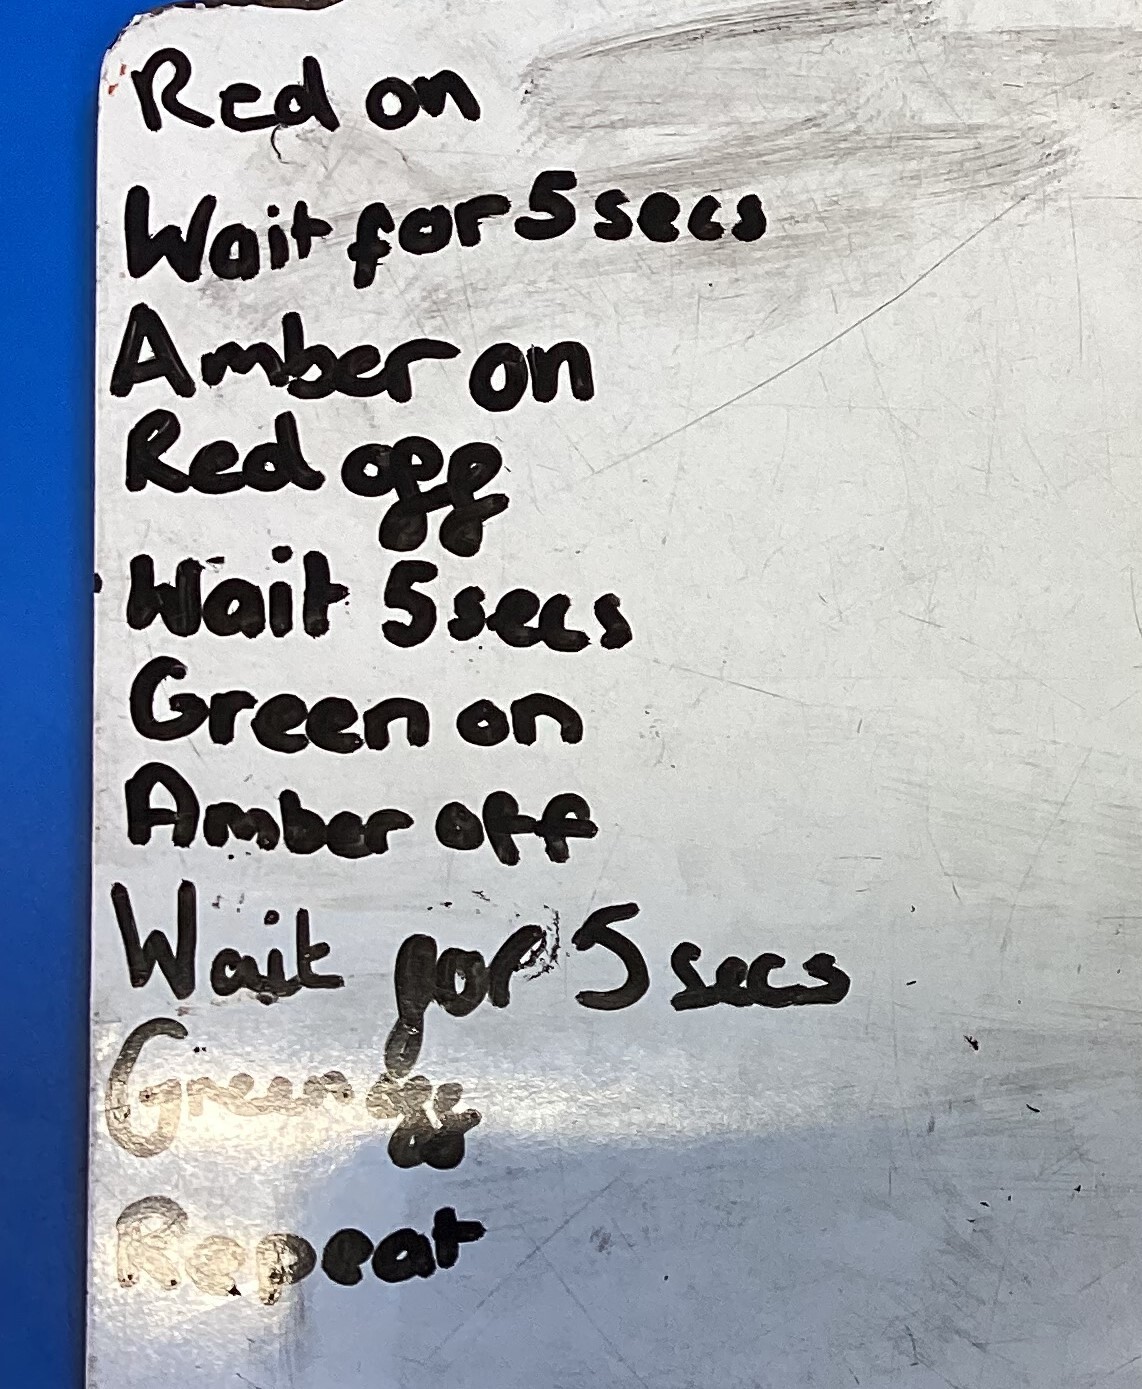 Red on
Wait for 5 secs
Amber on
Red off
Wait 5 secs
Green on
Amber off
Wait for 5 secs
Green off
Repeat